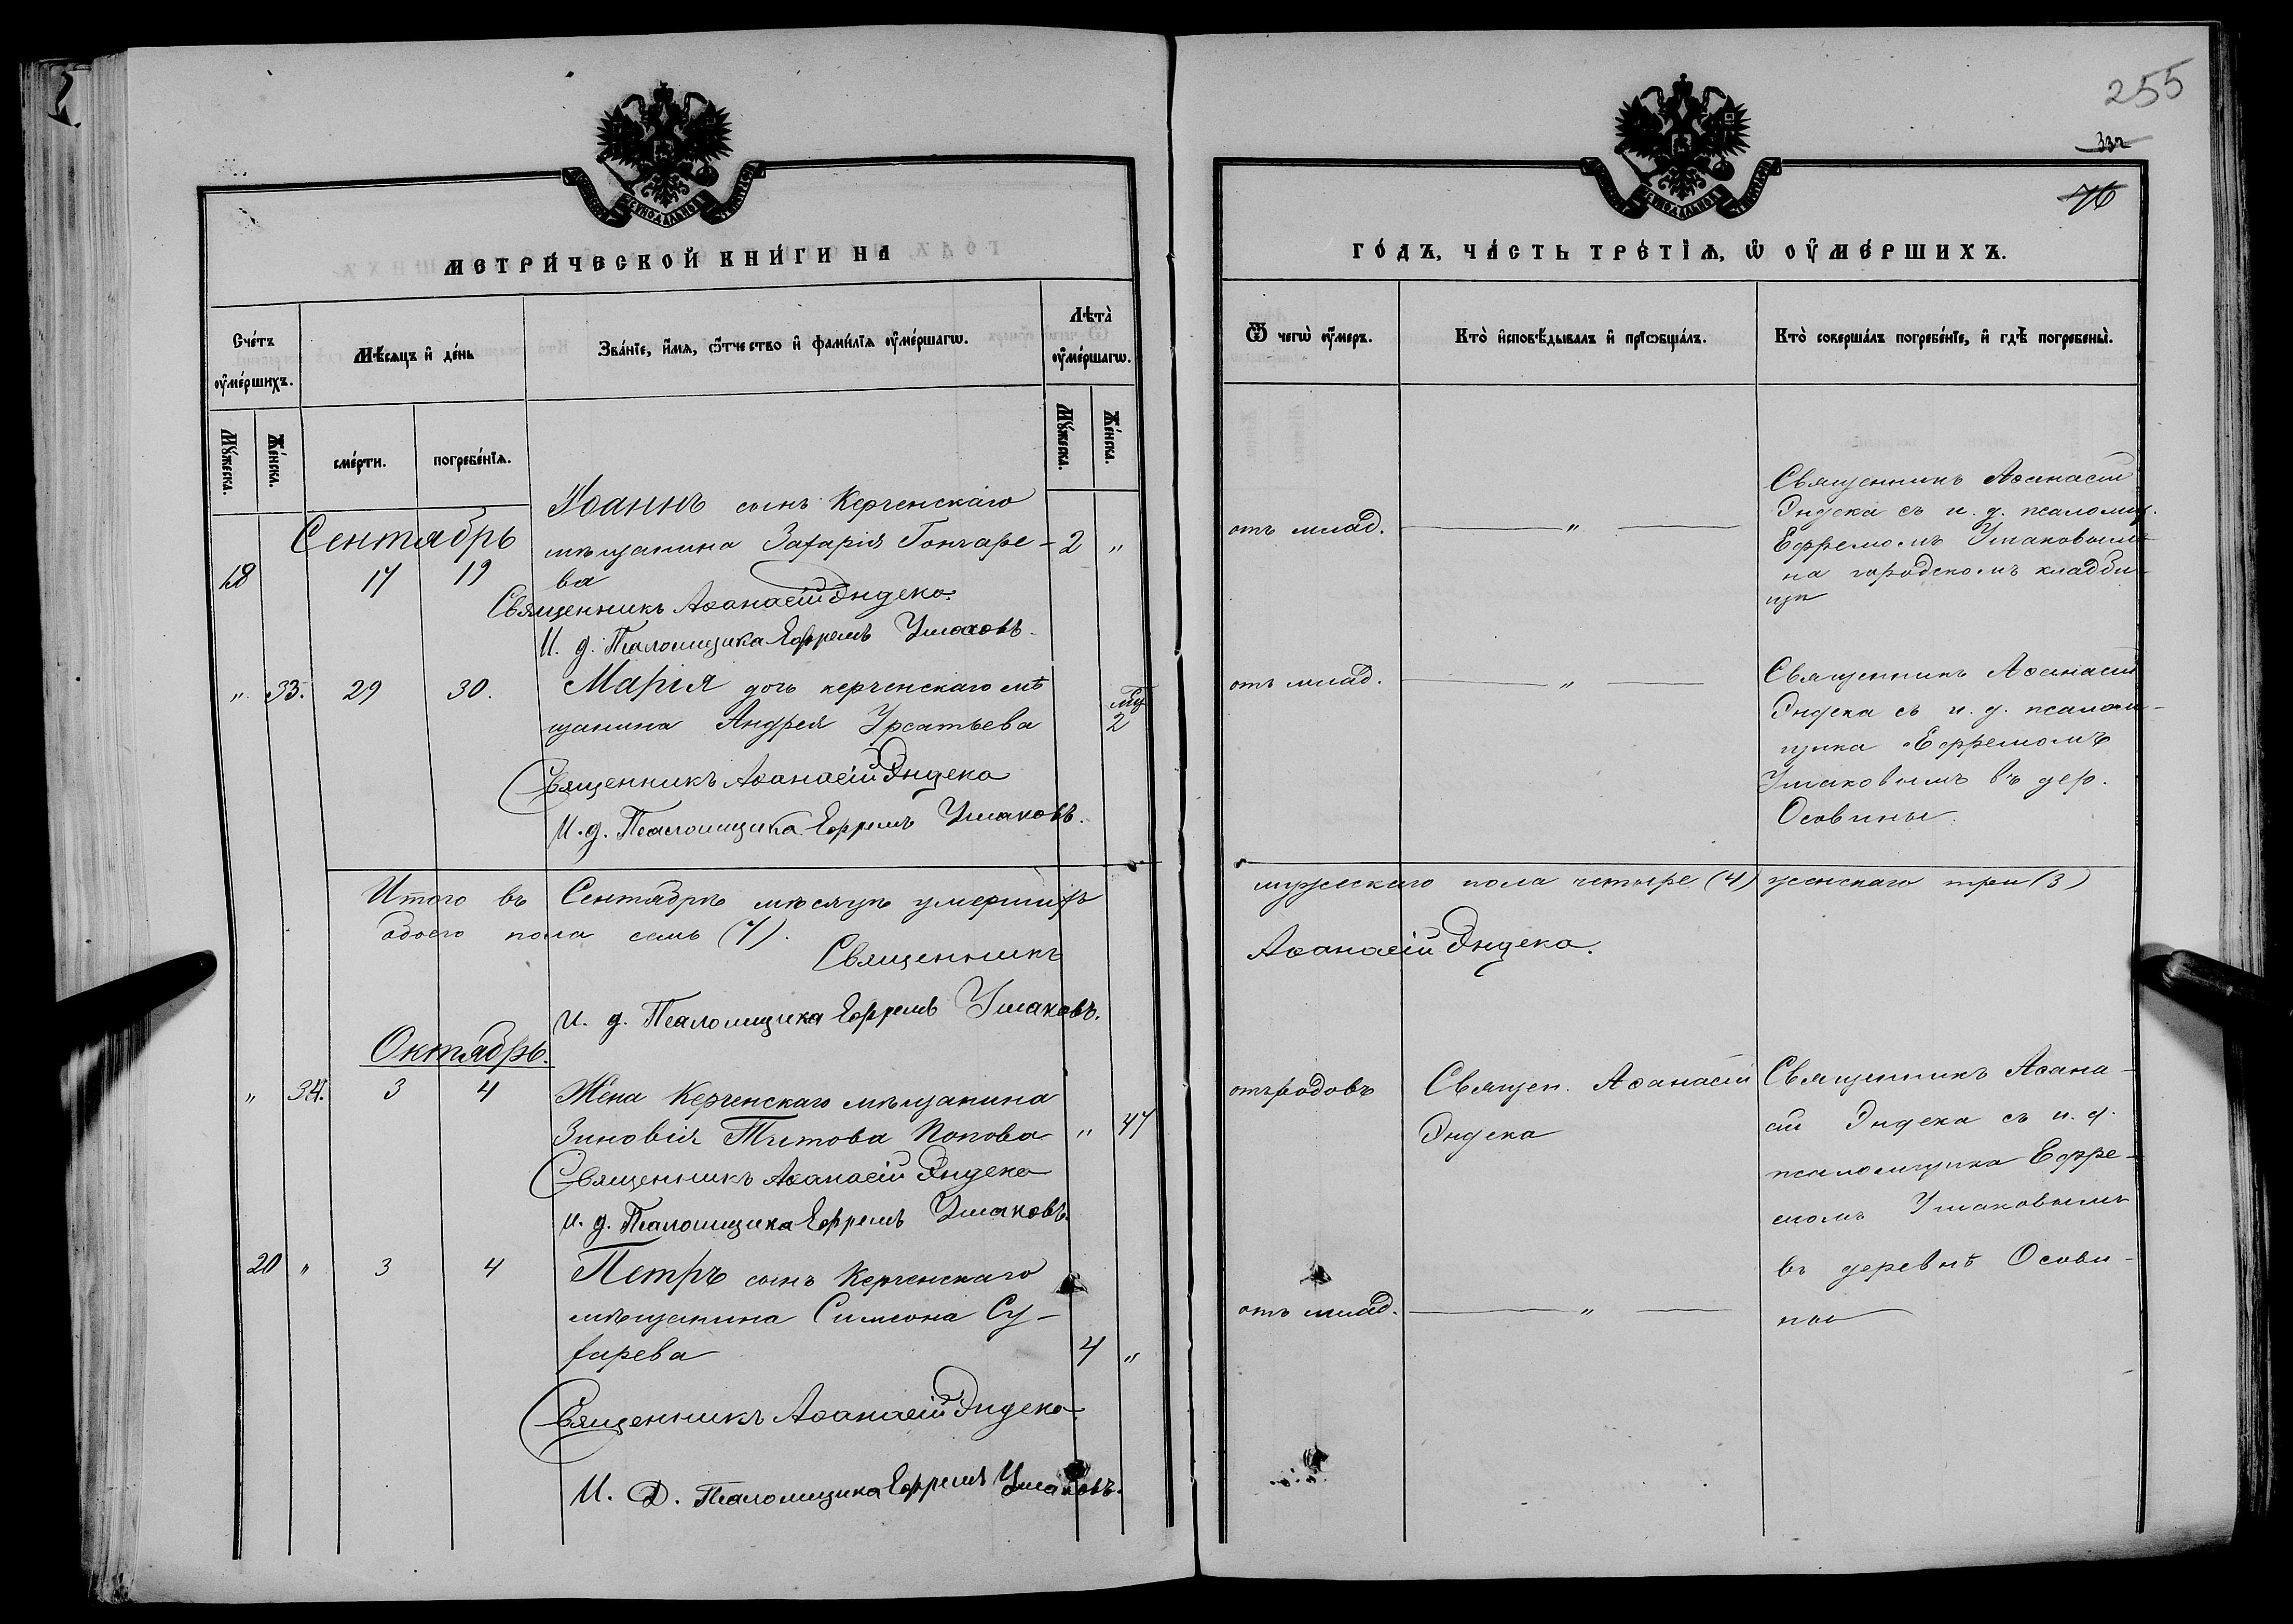 255
332
76
МЕТРИ́ЧЕСКОЙ КНИ́ГИ НА
ГО́ДЪ, ЧА́СТЬ ТРЕ́ТІѦ, Ѡ҆ ОУ҆МЕ́РШИХЪ.
Сче́тъ
оу҆ме́ршихъ.
Мѣ́сяцъ и҆ де́нь
Зва́нїе, и҆́мя, ѻ҆́тчество и҆ фами́лїя оу҆ме́ршагѡ.
Лѣ́та
оу҆ме́ршагѡ.
Мꙋ́жеска.
Же́нска.
сме́рти.
погребе́нїя.
Мꙋ́жеска.
Же́нска.
Ѿ чегѡ̀ оу҆́меръ.
Кто̀ и҆сповѣ́дывалъ и҆ прїѡбща́лъ.
Кто̀ соверша́лъ погребе́нїе, и҆ гдѣ̀ погребены̀.
Сентябрь
Іоаннъ сынъ Керченскаго
мѣщанина Захарія Гончаре-
ва
18 17 19 2 "
Священникъ Аѳанасій Эндека.
И. д. Псаломщика Ефремъ Ушаковъ.
отъ млад. "
Священникъ Аѳанасій
Эндека съ и. д. псаломщ.
Ефремомъ Ушаковымъ
на городскомъ кладби-
щѣ
" 33. 29 30. Марія дочь керченскаго мѣ
щанина Андрея Урсатьева
мц
2
Священникъ Аѳанасій Эндека
И. д. Псаломщика Ефремъ Ушаковъ.
отъ млад. "
Священникъ Аѳанасій
Эндека съ и. д. псалом-
щика Ефремомъ
Ушаковымъ въ дер.
Осовины.
Итого въ Сентябрѣ мѣсяцѣ умершихъ мужескаго пола четыре (4) женскаго три (3)
обоего пола семь (7).
Священникъ Аѳанасій Эндека.
И. д. Псаломщика Ефремъ Ушаковъ.
Октябрь.
" 34. 3 4 Жена Керченскаго мѣщанина
Зиновія Титова Попова " 47
Священникъ Аѳанасій Эндека
И. д. Псаломщика Ефремъ Ушаковъ.
отъ родовъ
Священ. Аѳанасій
Эндека
Священникъ Аѳана-
сій Эндека съ и. д.
псаломщика Ефре-
момъ Ушаковымъ
въ деревнѣ Осови-
ны
20 " 3 4 Петръ сынъ Керченскаго
мѣщанина Симеона Су-
харева 4 "
Священникъ Аѳанасій Эндека
И. Д. Псаломщика Ефремъ Ушаковъ.
отъ млад. "